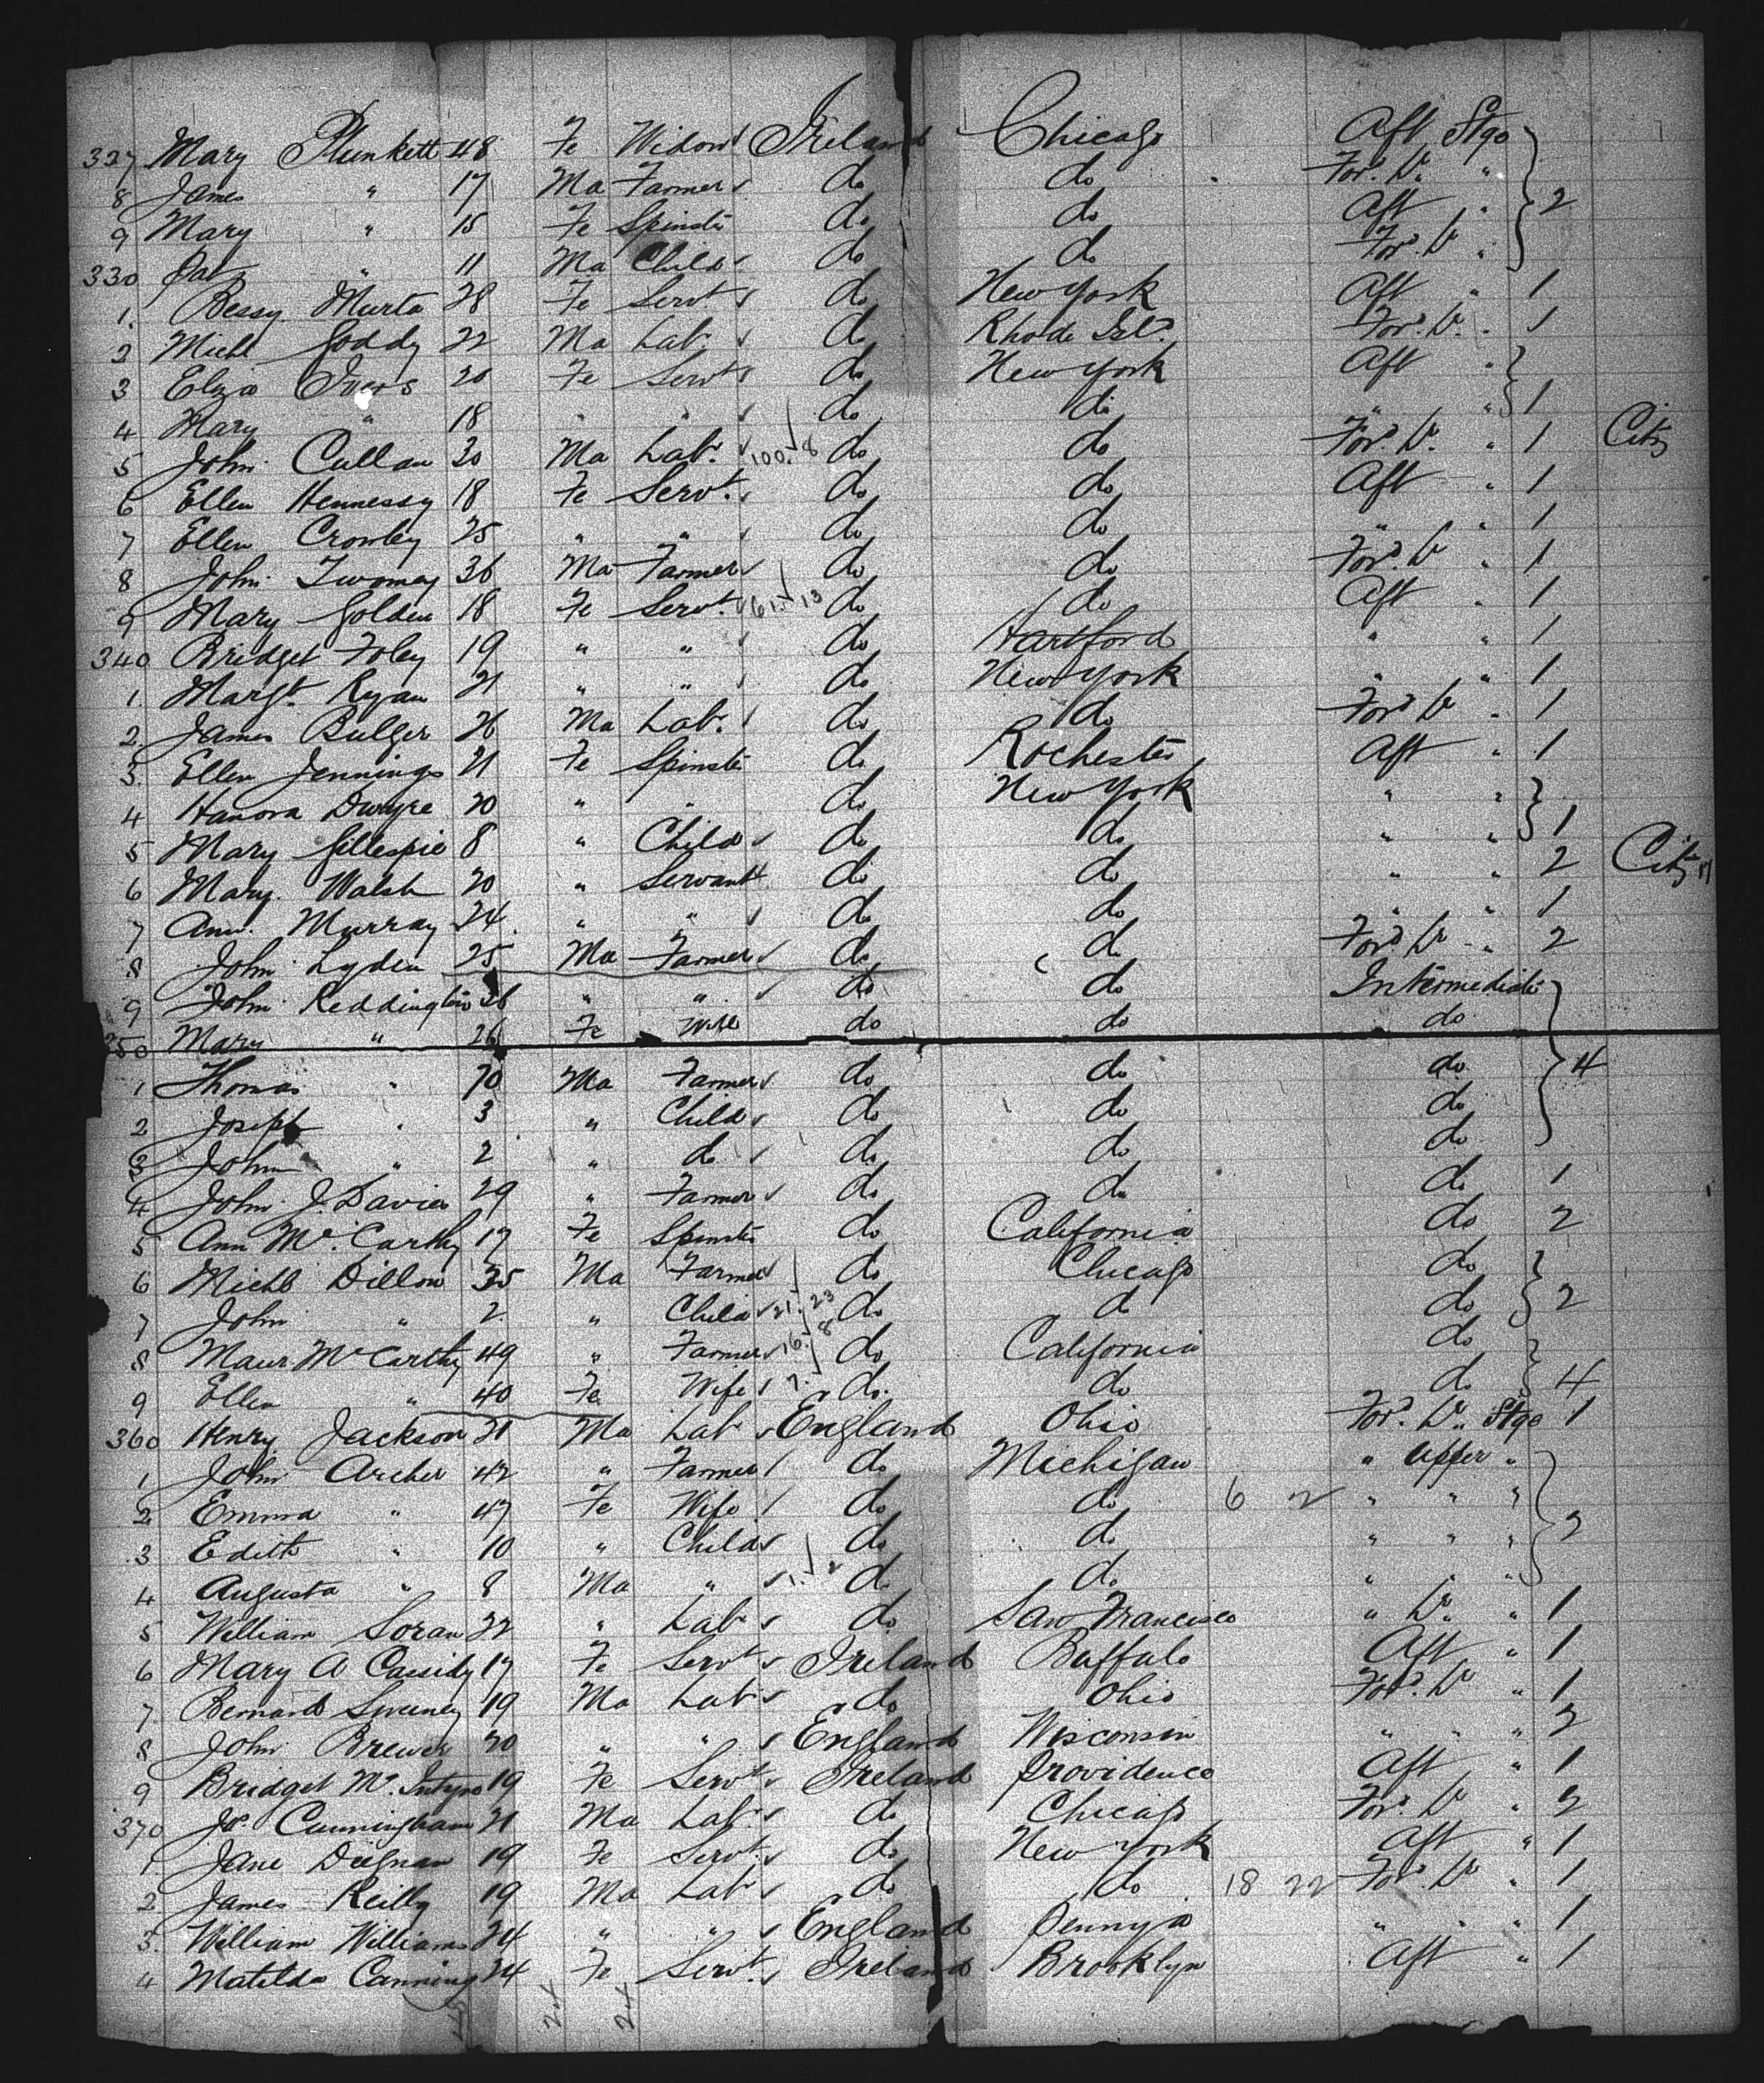 327 Mary Plunkett 48 Fe Widow Ireland Chicago Aft Stge
8 James " 17 Ma Farmer do do For'd Dk "
9 Mary " 15 Fe Spinster do do Aft " } 2
330 Pat " 11 Ma Child do do For'd Dk "
1. Bessy Murta 28 Fe Servt do New York Aft " 1
2 Michl Goddy 22 Ma Labr do Rhode Isld For'd Dk " 1
3 Eliza Ivers 20 Fe Servt do New York Aft "
4 Mary " 18 " " do do " " } 1
5 John Cullan 30 Ma Labr 100. 8 do do For'd Dk " 1 City
6 Ellen Hennessy 18 Fe Servt do do Aft " 1
7 Ellen Crowley 25 " " do do " " 1
8 John Twomey 36 Ma Farmer do do For'd Dk " 1
9 Mary Golden 18 Fe Servt 61. 13 do do Aft " 1
340 Bridget Foley 19 " " do Hartford " " 1
1. Margt Ryan 21 " " do New York " " 1
2 James Bulger 26 Ma Labr do do For'd Dk " 1
3. Ellen Jennings 21 Fe Spinster do Rochester Aft " 1
4 Hanora Dwyre 20 " " do New York " "
5 Mary Gillespie 8 " Child do do " " } 1
6 Mary Walsh 20 " Servant do do " " 2 City
7 Ann Murray 24 " " do do " " 1
8 John Lyden 25 Ma Farmer do do For'd Dk " 2
9 John Reddington 26 " " do do Intermediate
350 Mary " 26 Fe Wife do do do
1 Thomas " 70 Ma Farmer do do do } 4
2 Joseph " 3 " Child do do do
3 John " 2 " do do do do
4 John J. Davies 29 " Farmer do do do 1
5 Ann McCarthy 17 Fe Spinster do California do 2
6 Michl Dillon 35 Ma Farmer do Chicago do
7 John " 2 " Child 21. 23 do do do } 2
8 Maur McCarthy 49 " Farmer 16. 8 do California do
9 Ellen " 40 Fe Wife 7. do do do } 4
360 Henry Jackson 21 Ma Labr England Ohio For'd Dk Stge 1
1 John Archer 42 " Farmer do Michigan " Upper "
2 Emma " 47 Fe Wife do do 6 2 " " "
3 Edith " 10 " Child do do " " " } 2
4 Augusta " 8 Ma " 1. 2 do do " " "
5 William Soran 22 " Labr do San Francisco " Dk " 1
6 Mary A Cassidy 17 Fe Servt Ireland Buffalo Aft " 1
7. Bernard Sweeney 19 Ma Labr do Ohio For'd Dk " 1
8 John Brewer 20 " " England Wisconsin " " " 2
9 Bridget McIntyre 19 Fe Servt Ireland Providence Aft " 1
370 Js. Cunningham 21 Ma Labr do Chicago For'd Dk " 2
1. Jane Diegnan 19 Fe Servt do New York Aft " 1
2 James Reilly 19 Ma Labr do do 18 22 For'd Dk " 1
3. William Williams 24 " " England Pennya " " " 1
4 Matilda Canning 24 Fe Servt Ireland Brooklyn Aft " 1